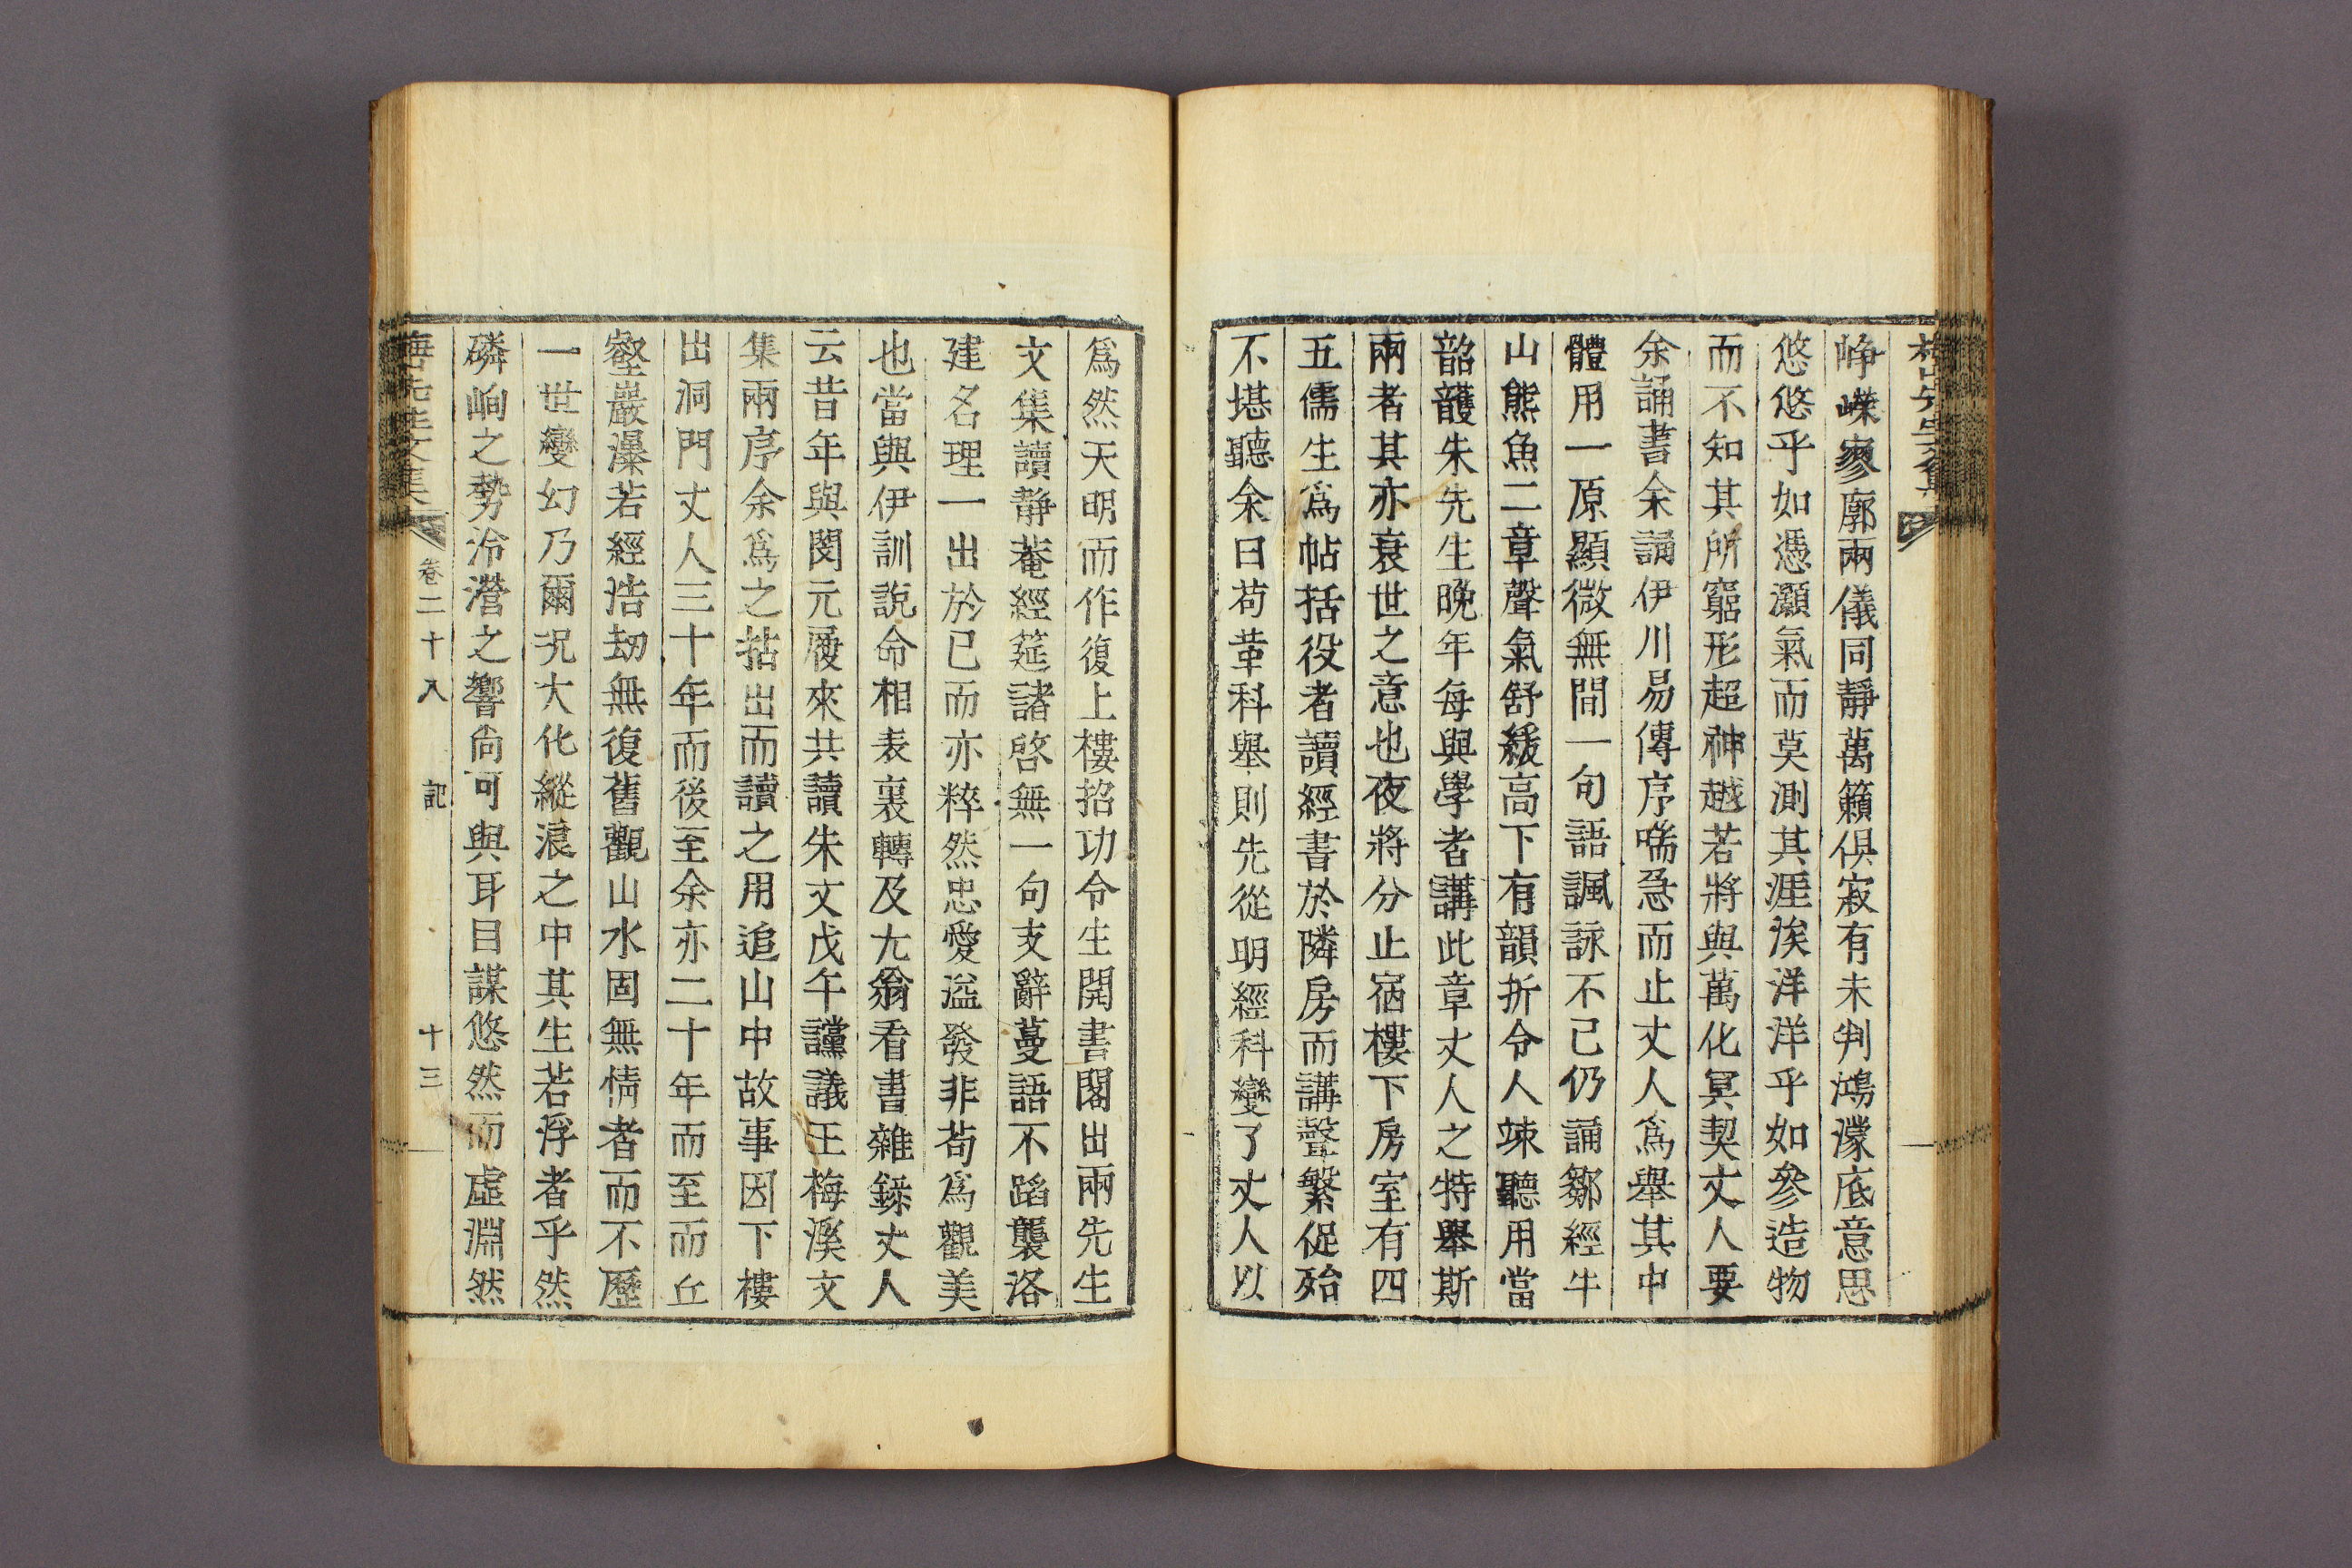 梅山先生文集
崢嶸寥廓兩儀同靜萬籟俱寂有未判鴻濛底意思
悠悠乎如憑灝氣而莫測其涯涘洋洋乎如參造物
而不知其所窮形超神越若將與萬化冥契丈人要
余誦書余誦伊川易傳序喘急而止丈人爲舉其中
體用一原顯微無間一句語諷詠不已仍誦鄒經牛
山熊魚二章聲氣舒緩高下有韻折令人竦聽用當
韶頀朱先生晩年每與學者講此章丈人之特舉斯
兩者其亦衰世之意也夜將分止宿樓下房室有四
五儒生爲帖括役者讀經書於隣房而講聲繁促殆
不堪聽余曰苟革科舉則先從明經科變了丈人以
爲然天明而作復上樓招功令生開書閣出兩先生
文集讀靜菴經筵諸啓無一句支辭蔓語不蹈襲洛
建名理一出於已而亦粹然忠愛溢發非苟爲觀美
也當與伊訓說命相表裏轉及尤翁看書雜錄丈人
云昔年與閔元履來共讀朱文戊午讜議王梅溪文
集兩序余爲之拈出而讀之用追山中故事因下樓
出洞門丈人三十年而後至余亦二十年而至而丘
壑巖瀑若經浩劫無復舊觀山水固無情者而不歷
一世變幻乃爾況大化縱浪之中其生若浮者乎然
磷峋之勢泠瀯之響尙可與耳目謀悠然而虛淵然
梅山先生文集
卷二十八
記
十三